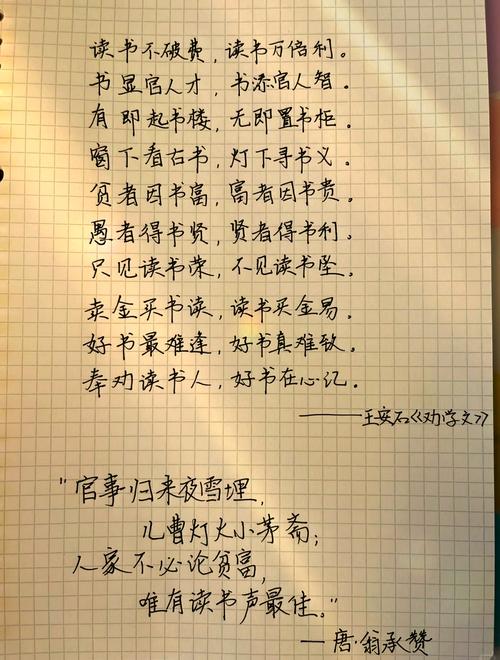 读书不破费，读书万倍利。
书显官人才，书添官人智。
有即起书楼，无即置书柜。
窗下看古书，灯下寻书义。
贫者因书富，富者因书贵。
愚者得书贤，贤者得书利。
只见读书荣，不见读书坠。
卖金买书读，读书买金易。
好书最难逢，好书真难致。
奉劝读书人，好书在心记。
——王安石《劝学文》
"官事归来夜雪埋，
儿曹灯火小茅斋；
人家不必论贫富，
唯有读书声最佳。"
—唐·翁承赞